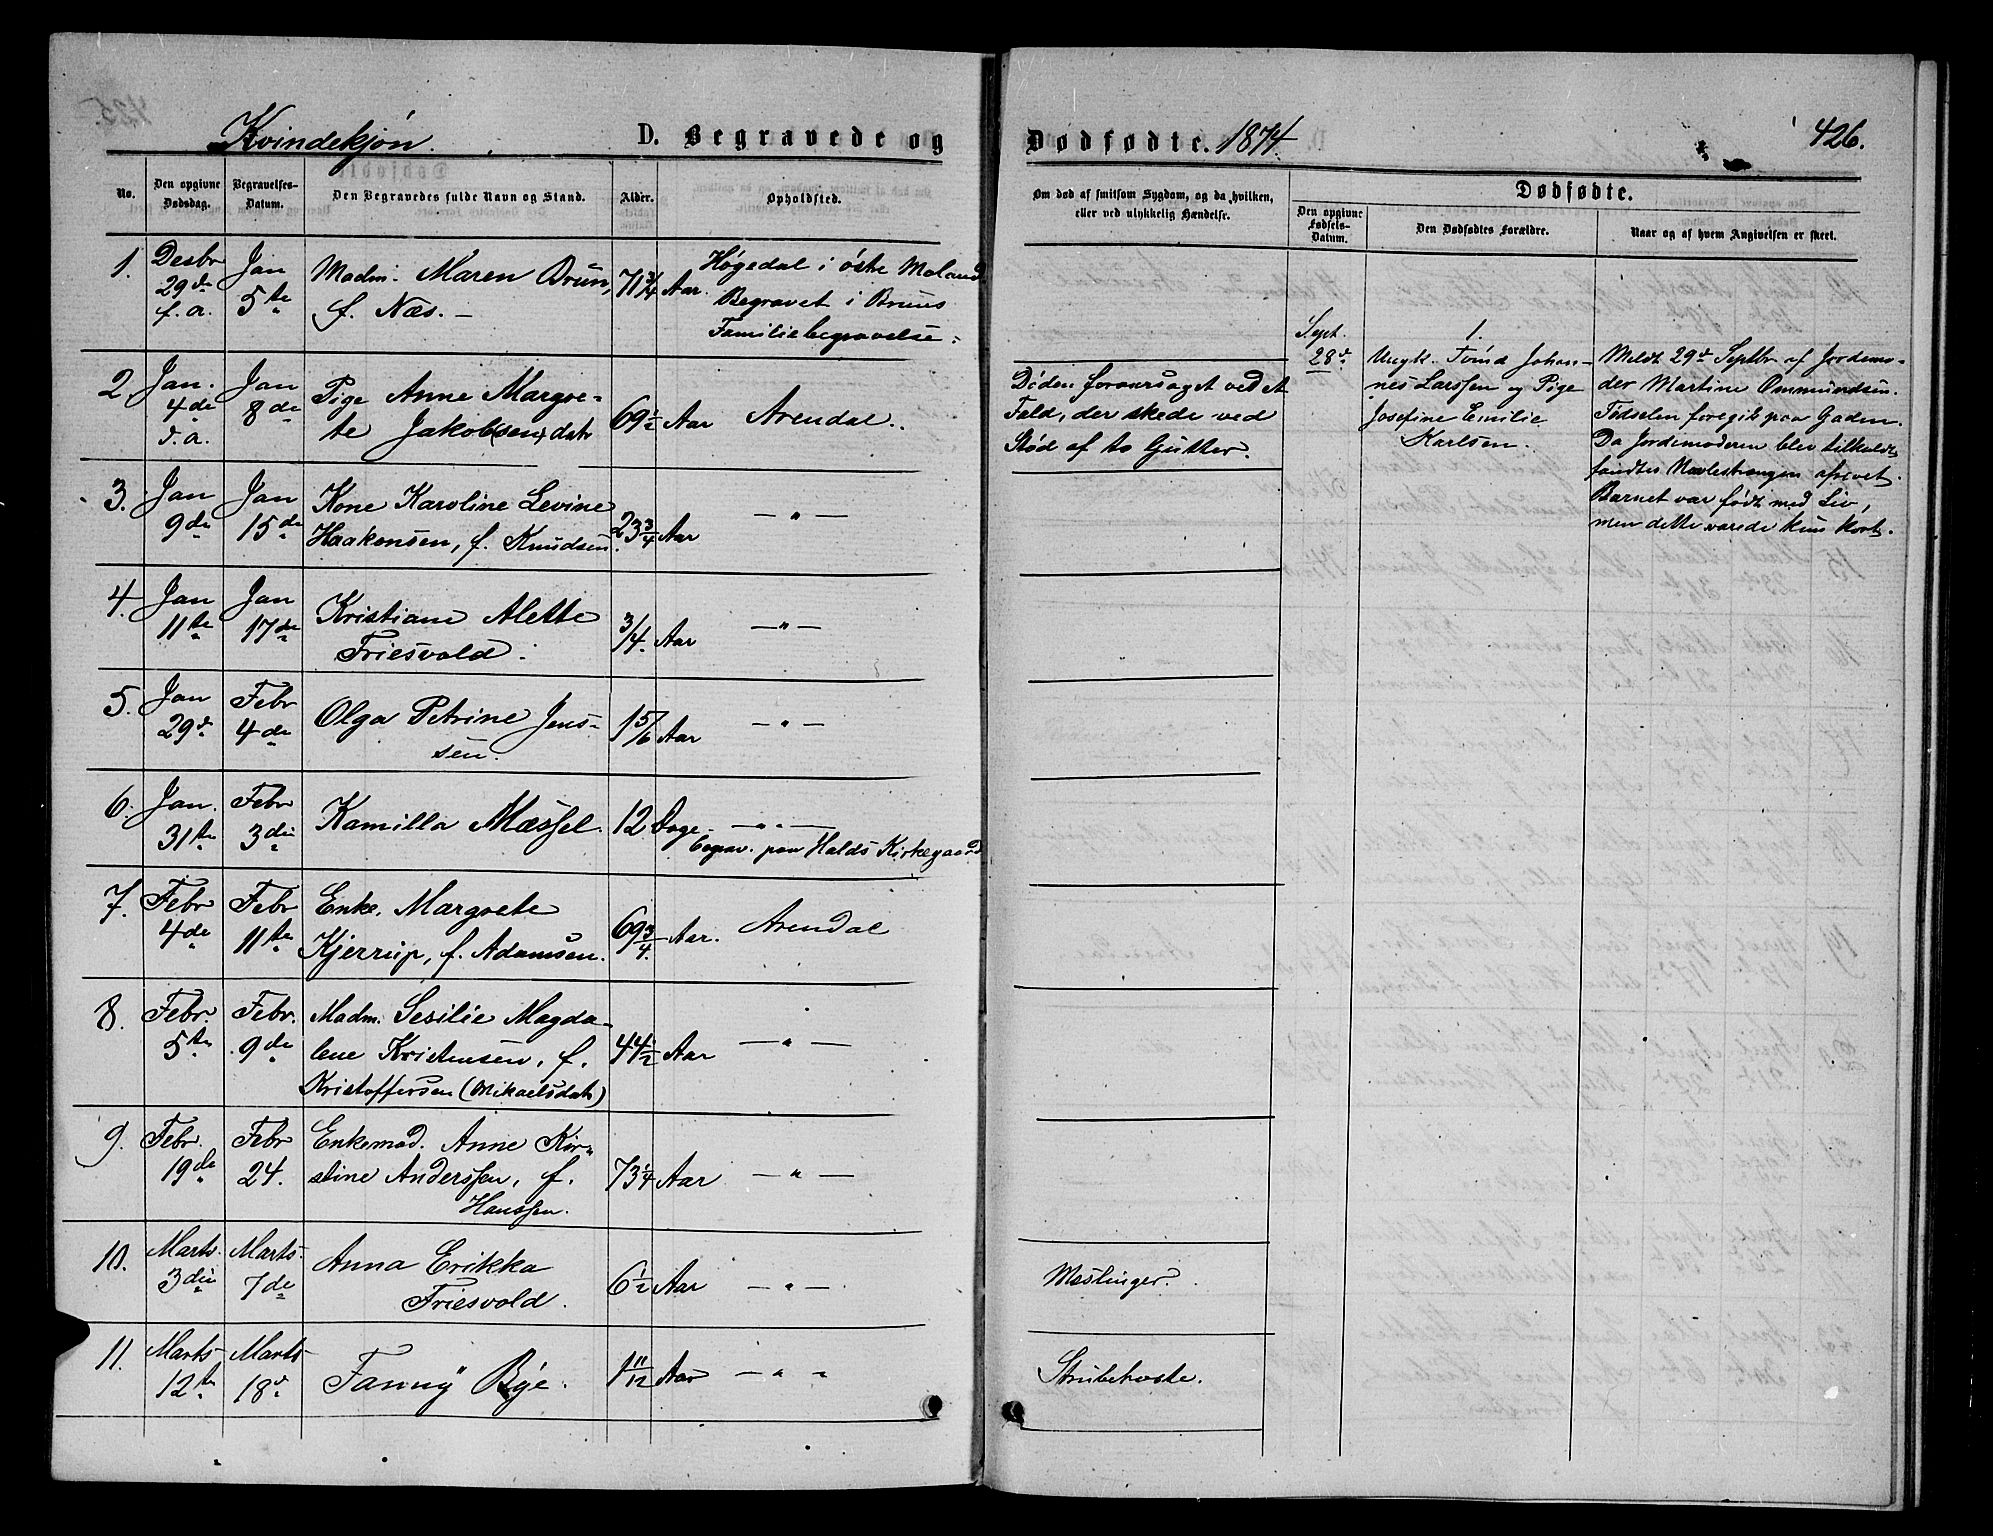 Kvindekjøn. D. Begravede og Dødfødte. 1874. 426.
No. Den opgivne Dødsdag. Begravelses-Datum. Den Begravedes fulde Navn og Stand. Alder. Opholdsted. Om død af smitsom Sygdom, og da hvilken, eller ved ulykkelig Hændelse. Dødfødte.
Den opgivne Fødsels-Datum. Den Dødfødtes Forældre. Naar og af hvem Angivelsen er skeet.
1. Desbr 29de f. a. Jan 5te Madm. Maren Brun, 71 3/4 Aar. Høgedal i østre Moland
f. Næs. — Begravet i Bruns
Familiebegravelse.
2. Jan. 4de d. a. Jan 8de Pige Anne Margre-
te Jakob(sen)datr 69 1/2 Aar Arendal.
Døden foraarsaget ved et
Fald, der skede ved
Stød af to Gutter.
3. Jan 9de Jan 15de Kone Karoline Levine
Haakonsen, f. Knudsen. 23 3/4 Aar — " —
4. Jan 11te Jan 17de Kristiane Alette
Friesvold. 3/4 Aar — " —
5. Jan 29de Febr 4de Olga Petrine Jens-
sen. 1 5/6 Aar — " —
6. Jan. 31te Febr 3die Kamilla Mæssel. 12 Dage — " —
Begrav. paa Holds Kirkegaard
7. Febr 4de Febr 11te Enke. Margrete
Kjerrup, f. Adamsen. 69 3/4 Aar. Arendal
8. Febr. 5te Febr. 9de Madm. Sesilie Magda-
lene Kristensen, f. 44 1/2 Aar — " —
Kristoffersen (Mikaelsdatr)
9. Febr. 19de Febr 24. Enkemad. Anne Kir-
stine Anderssen, f. 73 1/4 Aar — " —
Hanssen.
10. Marts 3die Marts 7de Anna Erikka
Friesvold. 6 1/2 Aar — " — Meslinger.
11. Marts 12te Marts 18de Fanny Bye. 1 11/12 Aar — " " Strubehoste.
Sept. 28de
1.
Ungk. Johan-
nes Larssen og Pige
Josefine Emilie
Karlsen.
Meldt 29de Septbr af Jordemo-
der Martine Ommundsen.
Fødselen foregik paa Gaden.
Da Jordemoderen blev tilkaldt,
fandtes Navlestrængen afrevet.
Barnet var født med Liv,
men dette varede kun kort.